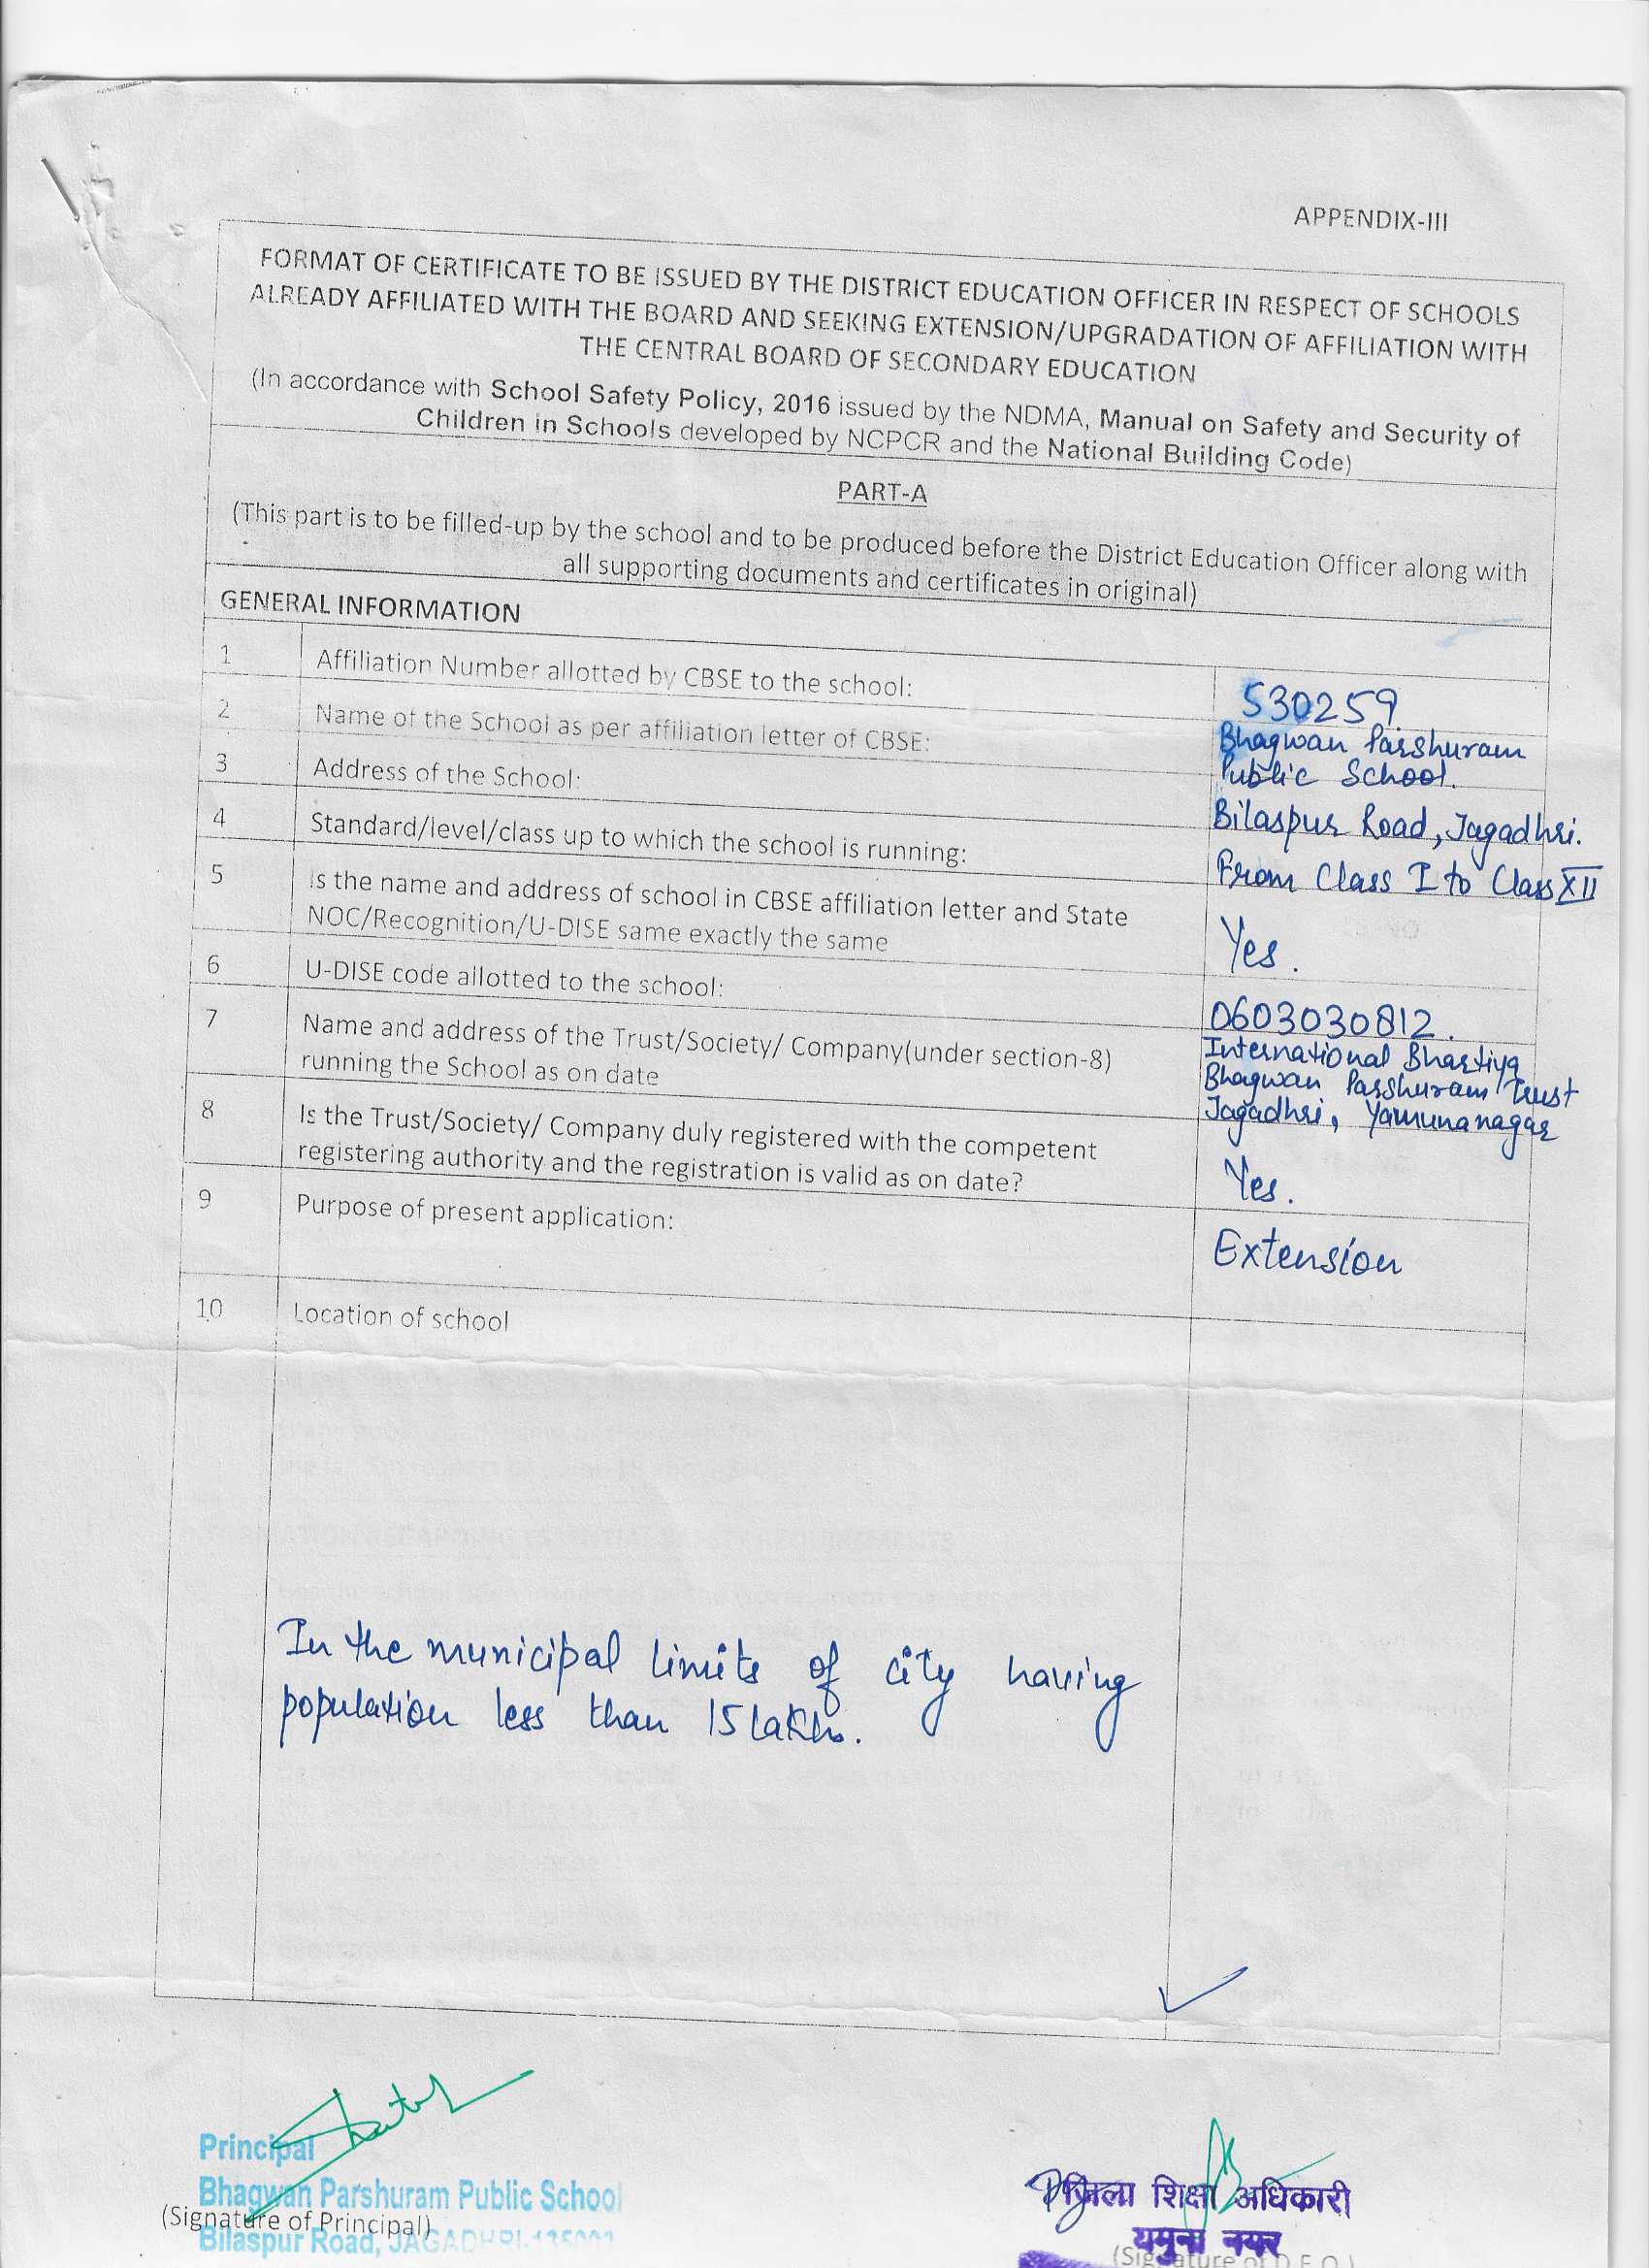 APPENDIX-III
FORMAT OF CERTIFICATE TO BE ISSUED BY THE DISTRICT EDUCATION OFFICER IN RESPECT OF SCHOOLS
ALREADY AFFILIATED WITH THE BOARD AND SEEKING EXTENSION/UPGRADATION OF AFFILIATION WITH
THE CENTRAL BOARD OF SECONDARY EDUCATION
(In accordance with School Safety Policy, 2016 issued by the NDMA, Manual on Safety and Security of
Children in Schools developed by NCPCR and the National Building Code)
PART-A
(This part is to be filled-up by the school and to be produced before the District Education Officer along with
all supporting documents and certificates in original)
GENERAL INFORMATION
1 Affiliation Number allotted by CBSE to the school: 530259
2 Name of the School as per affiliation letter of CBSE: Bhagwan Parshuram
Public School.
3 Address of the School: Bilaspur Road, Jagadhri.
4 Standard/level/class up to which the school is running: From Class I to Class XII
5 Is the name and address of school in CBSE affiliation letter and State
NOC/Recognition/U-DISE same exactly the same Yes.
6 U-DISE code allotted to the school: 0603030812.
7 Name and address of the Trust/Society/ Company(under section-8)
running the School as on date
International Bhartiya
Bhagwan Parshuram Trust
Jagadhri, Yamunanagar
8 Is the Trust/Society/ Company duly registered with the competent
registering authority and the registration is valid as on date? Yes.
9 Purpose of present application: Extension
10 Location of school
In the municipal limits of city having
population less than 15 lakh.
Principal
Bhagwan Parshuram Public School
(Signature of Principal)
Bilaspur Road, JAGADHRI-135001
जिला शिक्षा अधिकारी
यमुना नगर
(Signature of D.E.O.)